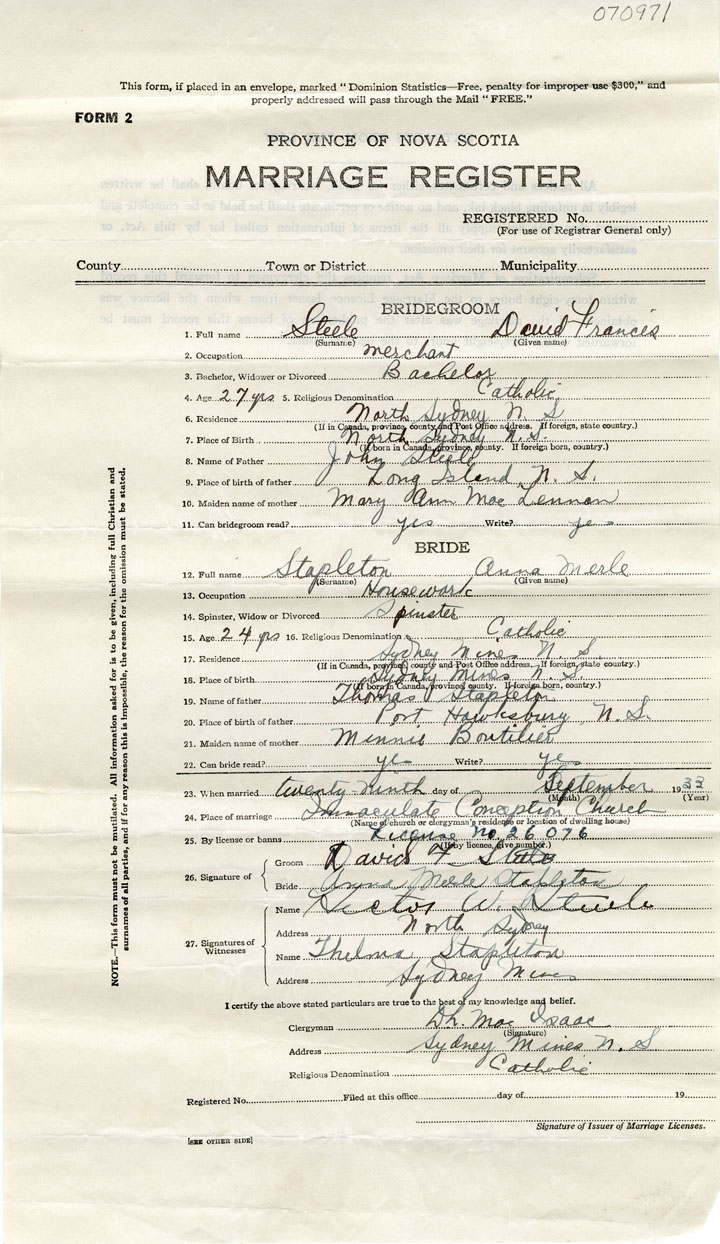 070971
This form, if placed in an envelope, marked "Dominion Statistics—Free, penalty for improper use $300," and
properly addressed will pass through the Mail "FREE."
FORM 2
PROVINCE OF NOVA SCOTIA
MARRIAGE REGISTER
REGISTERED No.
(For use of Registrar General only)
County Town or District Municipality
BRIDEGROOM
1. Full name Steele David Francis
(Surname) (Given name)
2. Occupation merchant
3. Bachelor, Widower or Divorced Bachelor
4. Age 27 yrs 5. Religious Denomination Catholic
6. Residence North Sydney N S
(If in Canada, province, county and Post Office address. If foreign, state country.)
7. Place of Birth North Sydney N.S.
(If born in Canada, province, county. If foreign born, country.)
8. Name of Father John Steele
9. Place of birth of father Long Island N. S.
10. Maiden name of mother Mary Ann Mac Lennan
11. Can bridegroom read? yes Write? yes
BRIDE
12. Full name Stapleton Anna Merle
(Surname) (Given name)
13. Occupation Housework
14. Spinster, Widow or Divorced Spinster
15. Age 24 yrs 16. Religious Denomination Catholic
17. Residence Sydney Mines N. S.
(If in Canada, province, county and Post Office address. If foreign, state country.)
18. Place of birth Sydney Mines N. S.
(If born in Canada, province, county. If foreign born, country.)
19. Name of father Thomas Stapleton
20. Place of birth of father Port Hawksbury N.S.
21. Maiden name of mother Minnie Boutilier
22. Can bride read? yes Write? yes
23. When married twenty ninth day of September 19
(Month) (Year)
24. Place of marriage Immaculate Conception Church
(Name of church or clergyman's residence or location of dwelling house)
25. By license or banns License No. 26076
(If by licence, give number.)
26. Signature of
Groom David F Steele
Bride Anna Merle Stapleton
27. Signatures of Witnesses
Name Victor W. Steele
Address North Sydney
Name Thelma Stapleton
Address Sydney Mines
I certify the above stated particulars are true to the best of my knowledge and belief.
Clergyman Dh. Mac Isaac
(Signature)
Address Sydney Mines N. S
Religious Denomination Catholic
Registered No. Filed at this office day of 19
Signature of Issuer of Marriage Licenses.
[SEE OTHER SIDE]
NOTE.—This form must not be mutilated. All information asked for is to be given, including full Christian and
surnames of all parties, and if for any reason this is impossible, the reason for the omission must be stated.